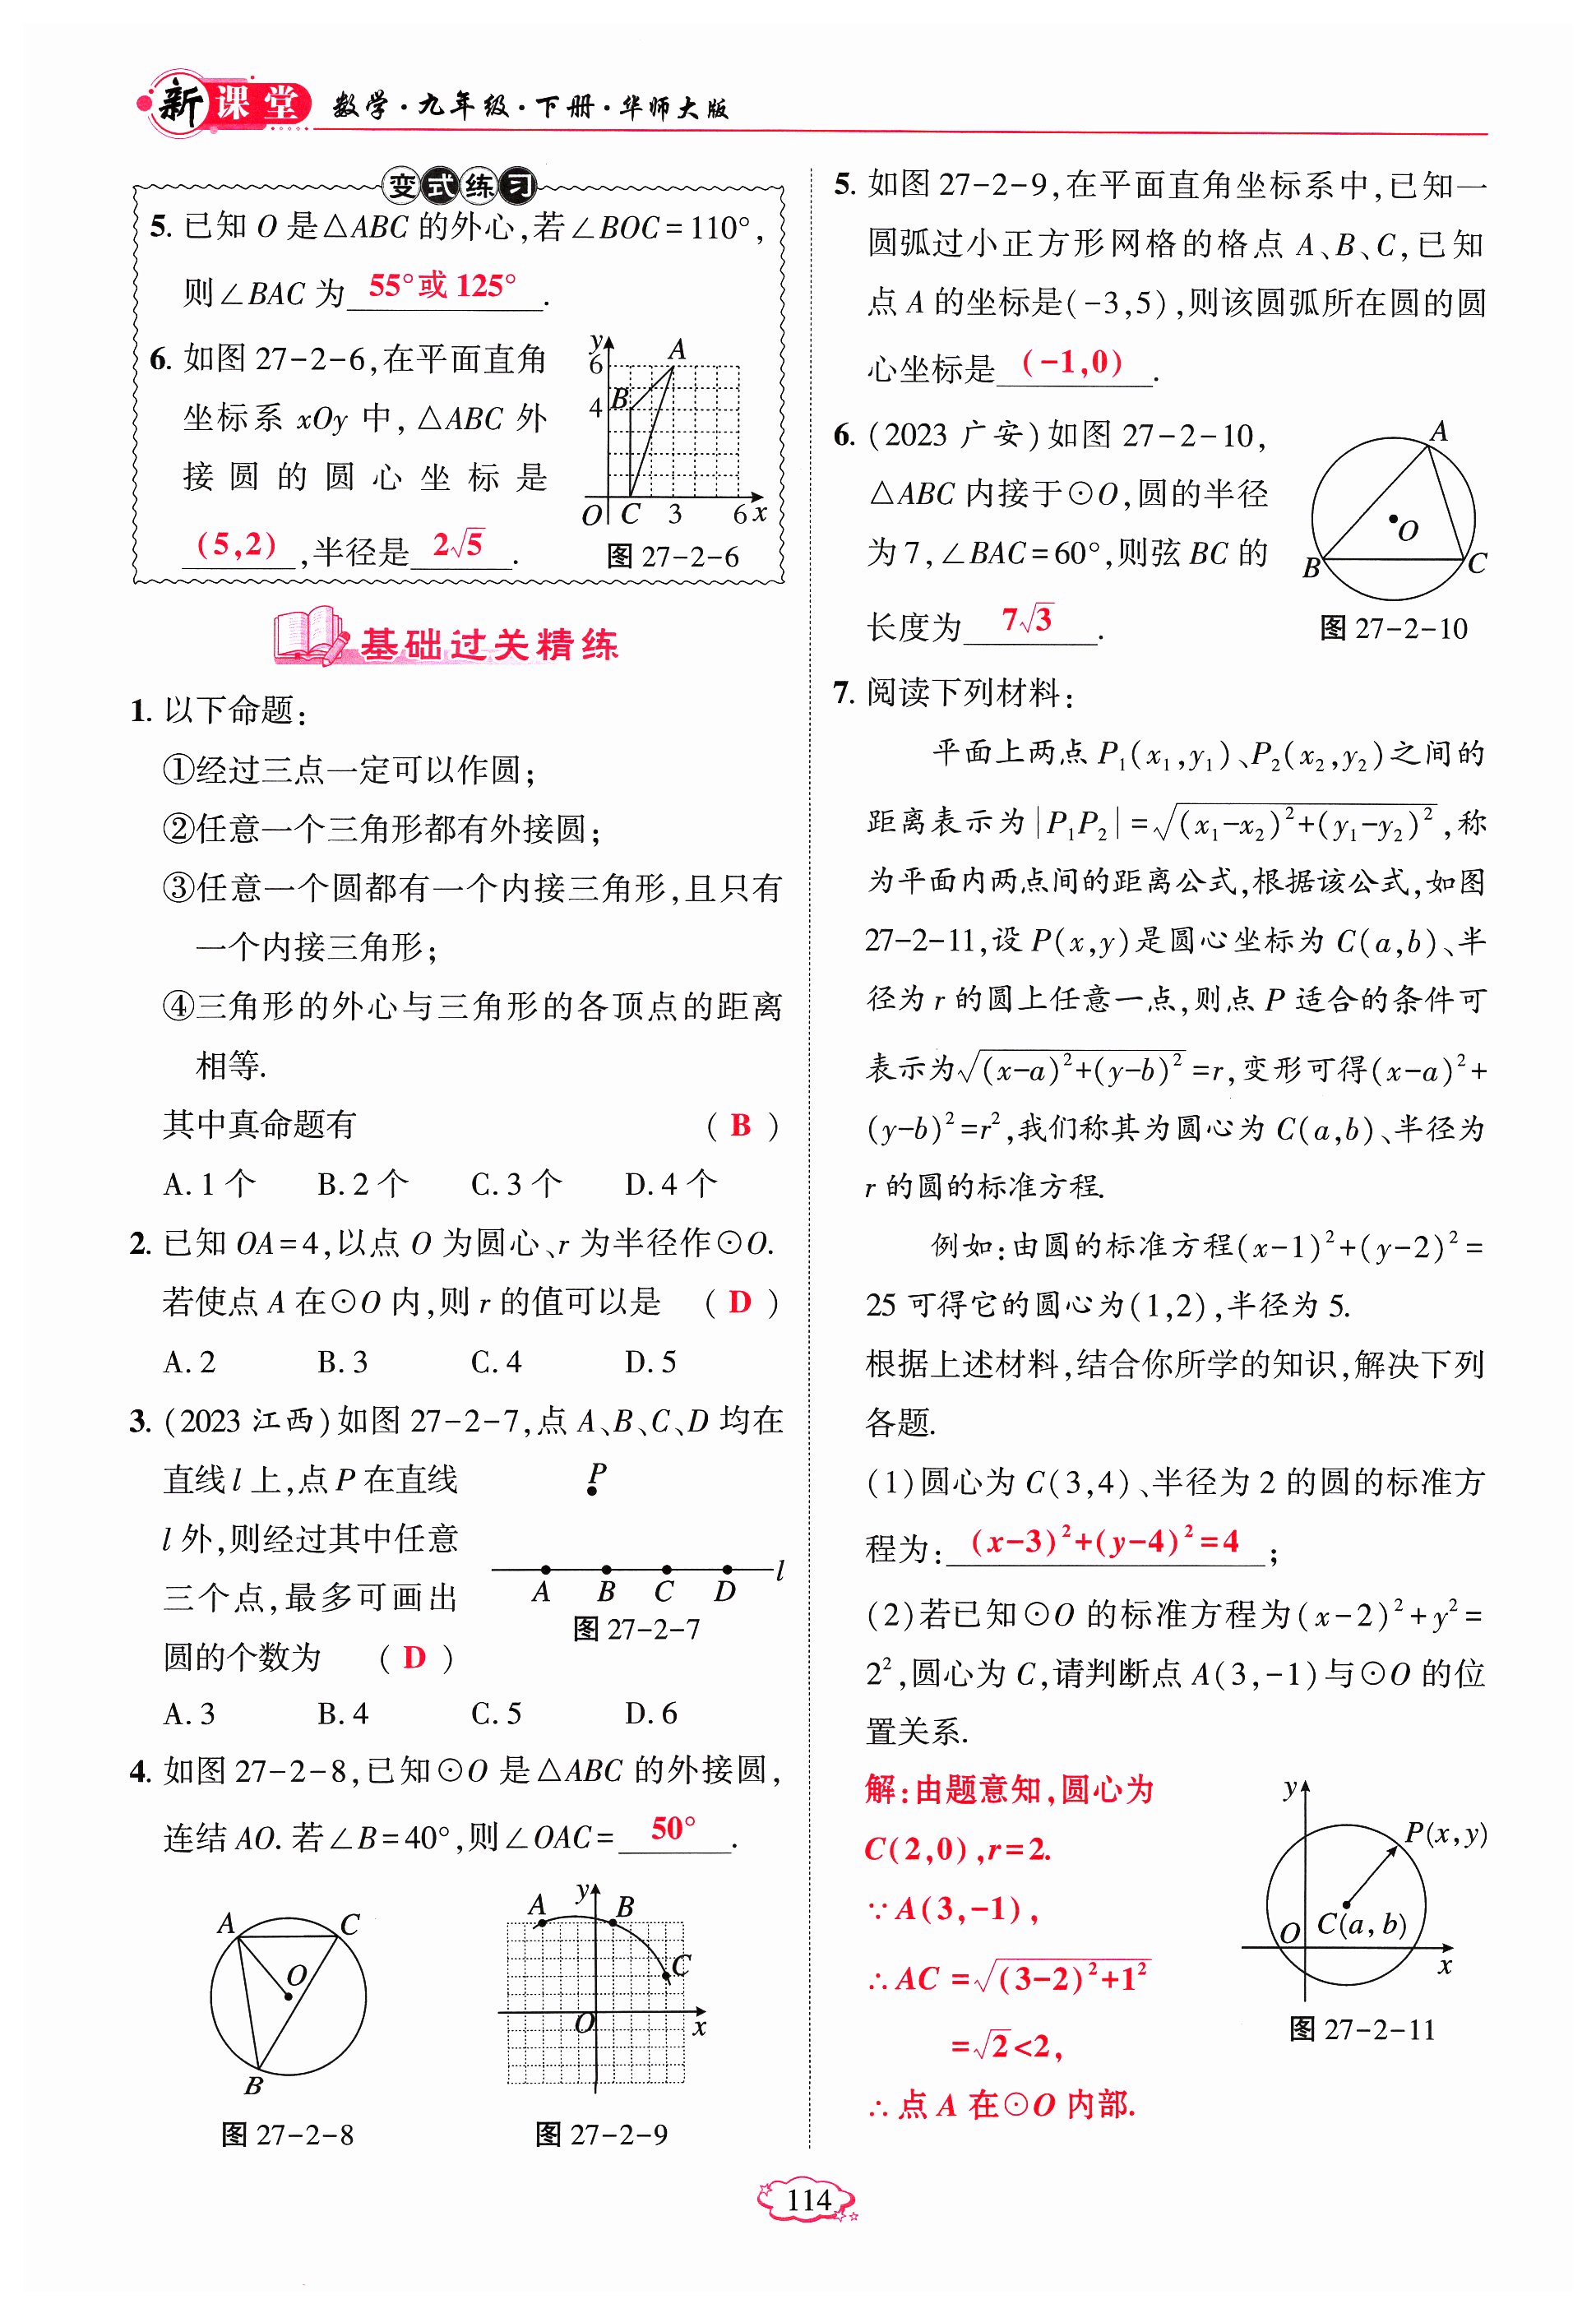 新课堂 数学·九年级·下册·华师大版
变式练习
5. 已知 O 是△ABC 的外心,若∠BOC=110°,
则∠BAC 为 55°或 125° .
6. 如图 27-2-6,在平面直角
坐标系 xOy 中,△ABC 外
接圆的圆心坐标是
(5,2) ,半径是 2√5 .
y
6
A
4
B
O C 3 6 x
图 27-2-6
基础过关精练
1. 以下命题:
①经过三点一定可以作圆;
②任意一个三角形都有外接圆;
③任意一个圆都有一个内接三角形,且只有
一个内接三角形;
④三角形的外心与三角形的各顶点的距离
相等.
其中真命题有 ( B )
A. 1 个 B. 2 个 C. 3 个 D. 4 个
2. 已知 OA=4,以点 O 为圆心、r 为半径作⊙O.
若使点 A 在⊙O 内,则 r 的值可以是 ( D )
A. 2 B. 3 C. 4 D. 5
3. (2023 江西)如图 27-2-7,点 A、B、C、D 均在
直线 l 上,点 P 在直线
l 外,则经过其中任意
三个点,最多可画出
圆的个数为 ( D )
P
A B C D l
图 27-2-7
A. 3 B. 4 C. 5 D. 6
4. 如图 27-2-8,已知⊙O 是△ABC 的外接圆,
连结 AO. 若∠B=40°,则∠OAC= 50° .
A C
O
B
图 27-2-8
A y B
C
O x
图 27-2-9
5. 如图 27-2-9,在平面直角坐标系中,已知一
圆弧过小正方形网格的格点 A、B、C,已知
点 A 的坐标是(-3,5),则该圆弧所在圆的圆
心坐标是 (-1,0) .
6. (2023 广安)如图 27-2-10,
△ABC 内接于⊙O,圆的半径
为 7,∠BAC=60°,则弦 BC 的
长度为 7√3 .
A
O
B C
图 27-2-10
7. 阅读下列材料:
平面上两点 P₁(x₁,y₁)、P₂(x₂,y₂)之间的
距离表示为|P₁P₂|=√(x₁-x₂)²+(y₁-y₂)²,称
为平面内两点间的距离公式,根据该公式,如图
27-2-11,设 P(x,y)是圆心坐标为 C(a,b)、半
径为 r 的圆上任意一点,则点 P 适合的条件可
表示为√(x-a)²+(y-b)²=r,变形可得(x-a)²+
(y-b)²=r²,我们称其为圆心为 C(a,b)、半径为
r 的圆的标准方程.
例如:由圆的标准方程(x-1)²+(y-2)²=
25 可得它的圆心为(1,2),半径为 5.
根据上述材料,结合你所学的知识,解决下列
各题.
(1)圆心为 C(3,4)、半径为 2 的圆的标准方
程为: (x-3)²+(y-4)²=4 ;
(2)若已知⊙O 的标准方程为(x-2)²+y²=
2²,圆心为 C,请判断点 A(3,-1)与⊙O 的位
置关系.
解:由题意知,圆心为
C(2,0),r=2.
∵A(3,-1),
∴AC =√(3-2)²+1²
=√2<2,
∴点 A 在⊙O 内部.
y
P(x,y)
C(a,b)
O
x
图 27-2-11
114